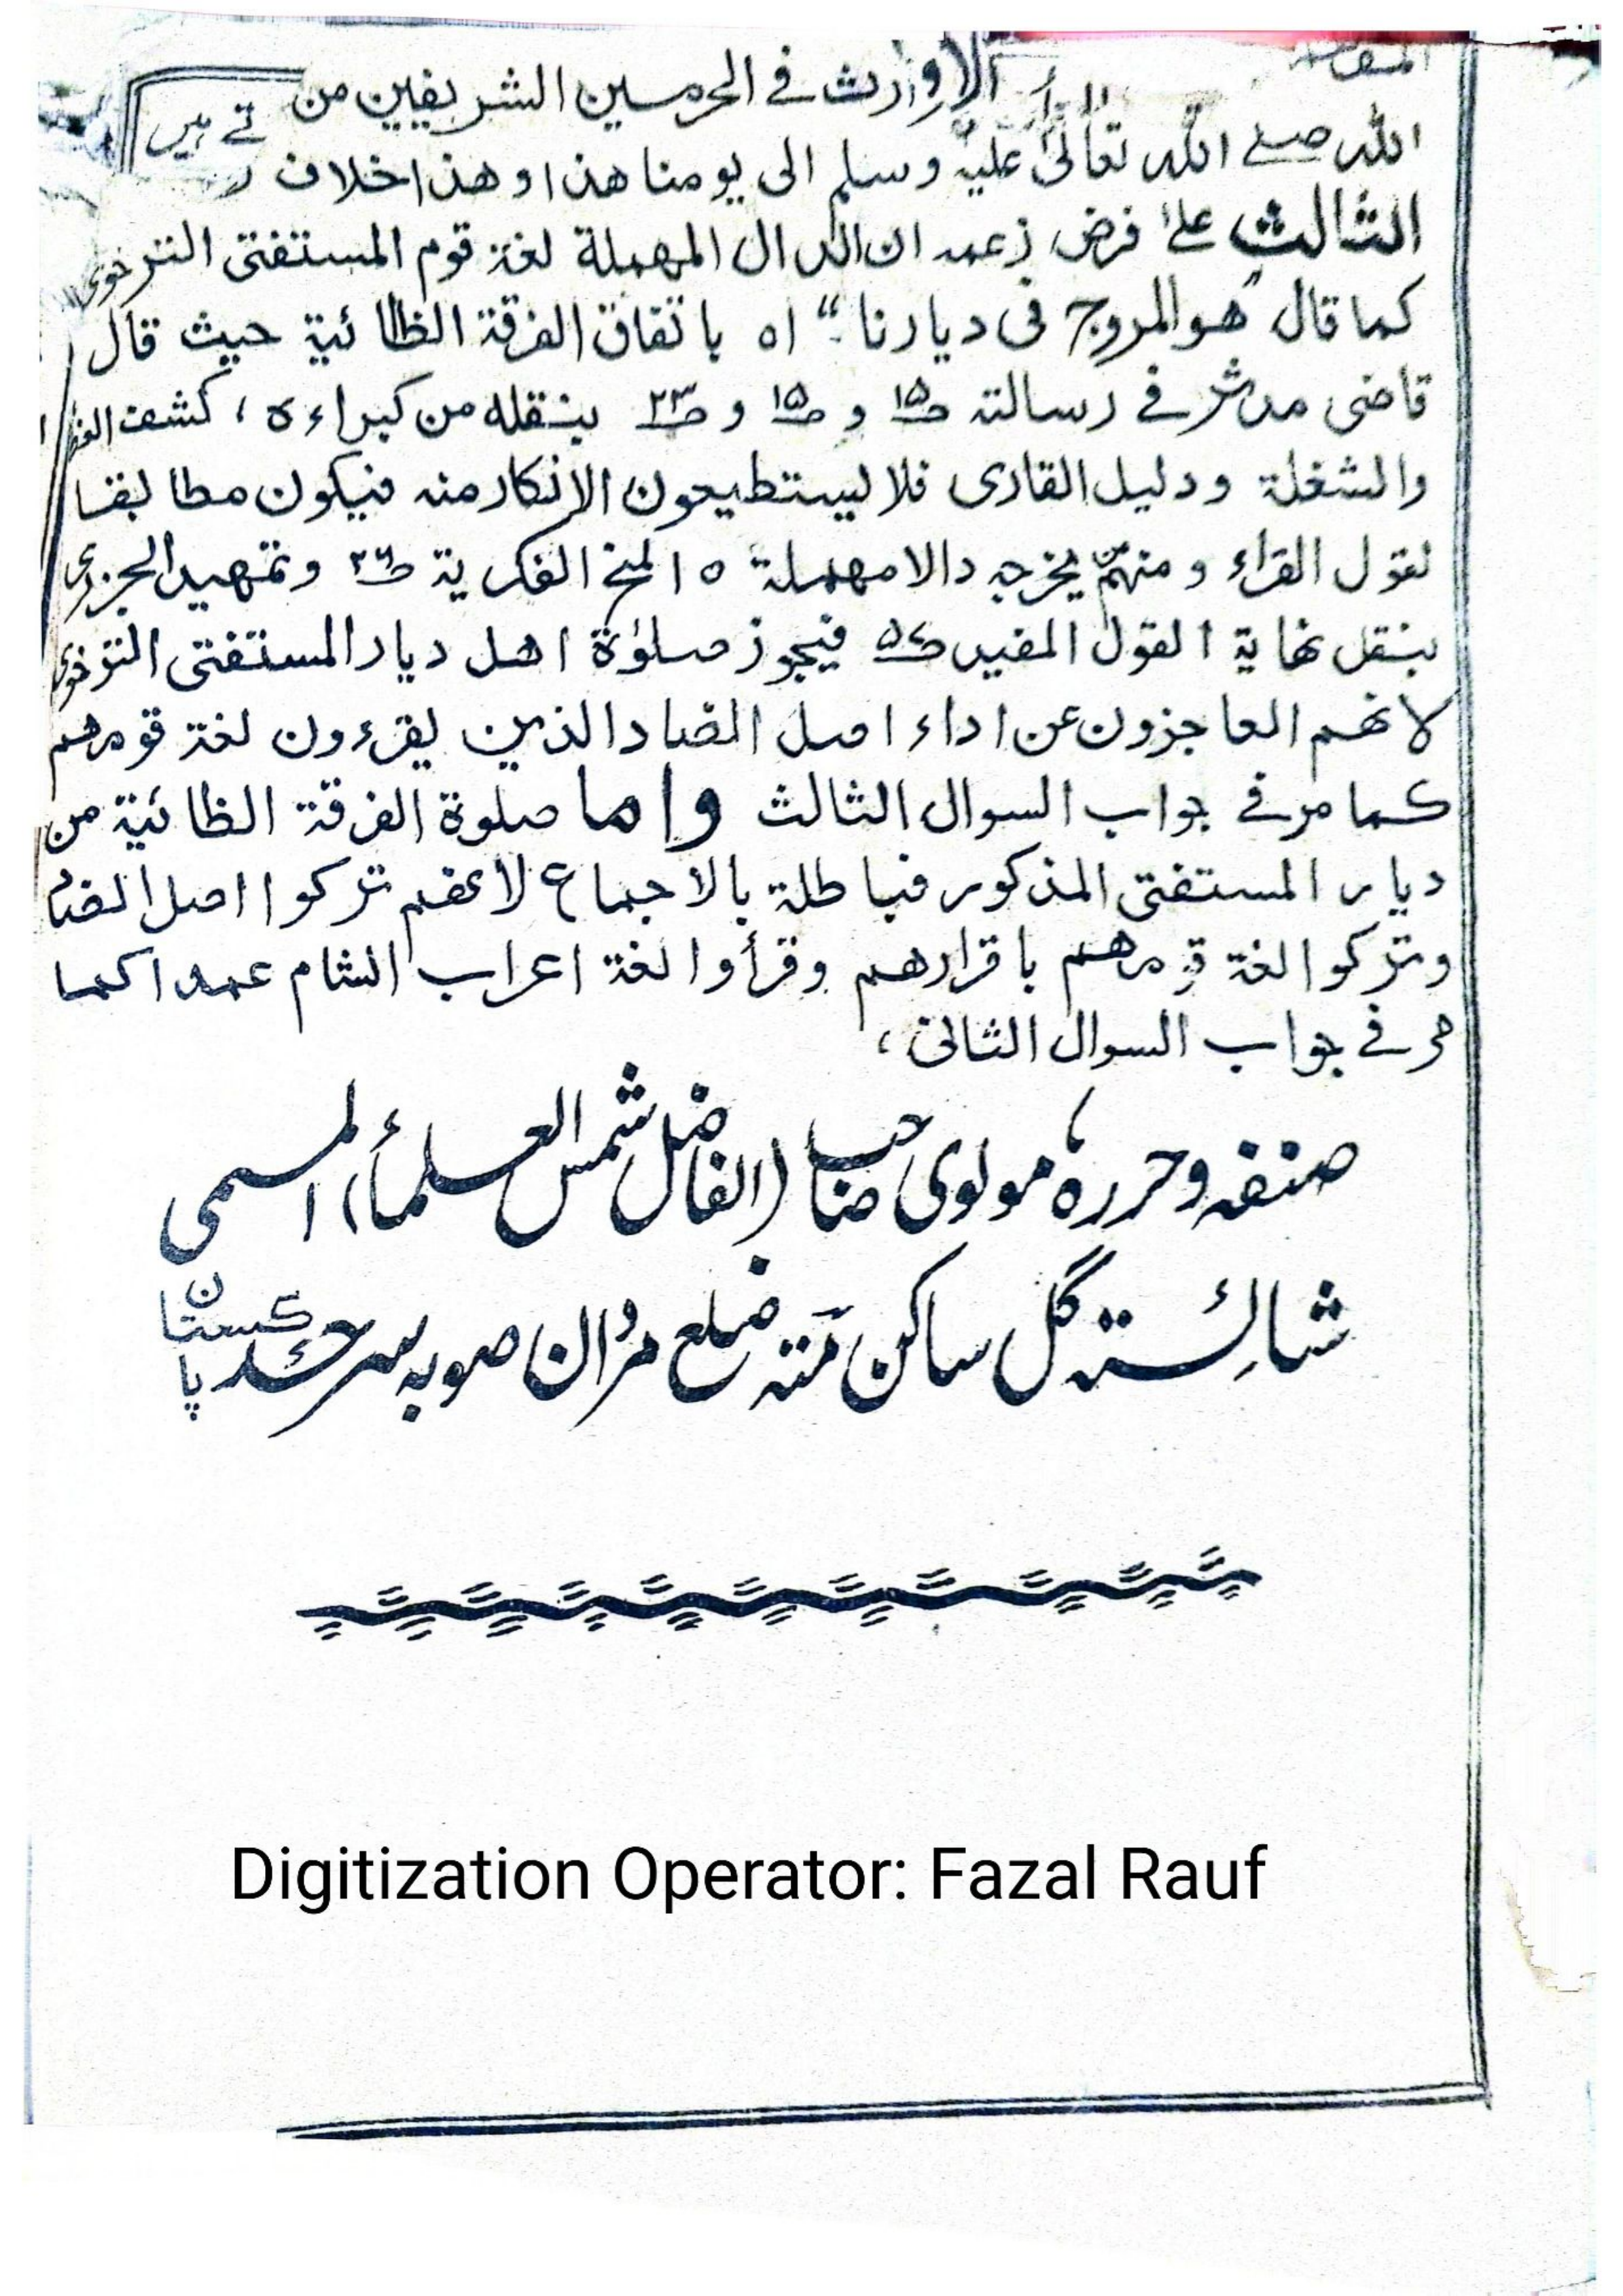 الاوارث فے الحرمين الشريفين من
تے ہیں
الله صلے الله تعالیٰ عليه وسلم الى يومنا هذا وهذا خلاف
الثالث علےٰ فرض زعمه ان الدال المهملة لغة قوم المستفتى التنوخوى
كما قال "هو المروج فى ديارنا" اه باتفاق الفرقة الظائية حيث قال
قاضى مدثر فے رسالته ص١٥ و ص١٥ و ص٢٣ بنقله من كبراءه ، كشف
والشغلة ودليل القارى فلا يستطيعون الانكار منه فيكون مطابقا
لقول القراء و منهم من يخرجه دالا مهملة ٥ المنح الفكرية ص٣٦ وتمهيد الجزرى
بنقل نهاية القول المفيد ص٥٨ فيجوز صلوٰة اهل ديار المستفتى التنوخوى
لانهم العاجزون عن اداء اصل الضاد الذين يقرءون لغة قومهم
كما مر فے جواب السوال الثالث واما صلوة الفرقة الظائية من
ديار المستفتى المذكور فباطلة بالاجماع لانهم تركوا اصل الضاد
وتركوا لغة قومهم باقرارهم وقرأوا لغة اعراب الشام عمدا كما
مر فے جواب السوال الثانى ،
صنفہ وحررہ مولوی صاحب (الفاضل شمس العلمأ) المسمى
شائستہ گل ساکن مَتہ ضلع مرُدان صوبہ سرحد پاکستان
Digitization Operator: Fazal Rauf